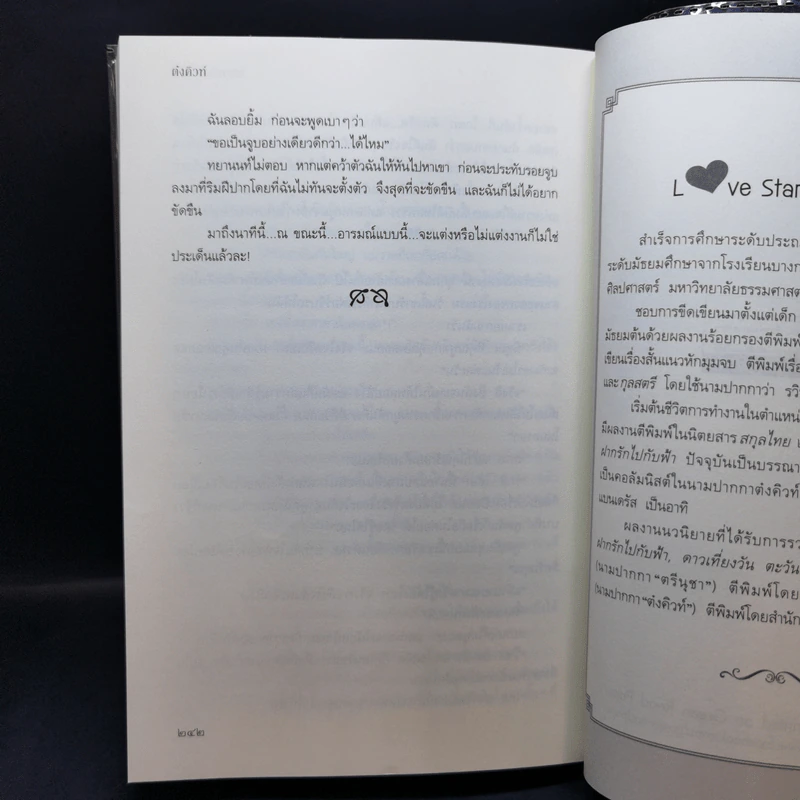 ต๋งคิวท์
ฉันลอบยิ้ม ก่อนจะพูดเบาๆว่า
“ขอเป็นจูบอย่างเดียวดีกว่า...ได้ไหม”
ทยานนท์ไม่ตอบ หากแต่คว้าตัวฉันให้หันไปหาเขา ก่อนจะประทับรอยจูบ
ลงมาที่ริมฝีปากโดยที่ฉันไม่ทันจะตั้งตัว จึงสุดที่จะขัดขืน และฉันก็ไม่ได้อยาก
ขัดขืน
มาถึงนาทีนี้...ณ ขณะนี้...อารมณ์แบบนี้...จะแต่งหรือไม่แต่งงานก็ไม่ใช่
ประเด็นแล้วละ!
๒๔๒
L ve Star
สำเร็จการศึกษาระดับประถ
ระดับมัธยมศึกษาจากโรงเรียนบางก
ศิลปศาสตร์ มหาวิทยาลัยธรรมศาสต
ชอบการขีดเขียนมาตั้งแต่เด็ก
มัธยมต้นด้วยผลงานร้อยกรองตีพิมพ์
เขียนเรื่องสั้นแนวหักมุมจบ ตีพิมพ์เรื่อ
และกุลสตรี โดยใช้นามปากกาว่า รวิ
เริ่มต้นชีวิตการทำงานในตำแหน่
มีผลงานตีพิมพ์ในนิตยสาร สกุลไทย
ฝากรักไปกับฟ้า ปัจจุบันเป็นบรรณา
เป็นคอลัมนิสต์ในนามปากกาต๋งคิวท์
แบนเดรัส เป็นอาทิ
ผลงานนวนิยายที่ได้รับการรว
ฝากรักไปกับฟ้า, ดาวเที่ยงวัน ตะวัน
(นามปากกา “ตรีนุชา”) ตีพิมพ์โดย
(นามปากกา “ต๋งคิวท์”) ตีพิมพ์โดยสำนัก